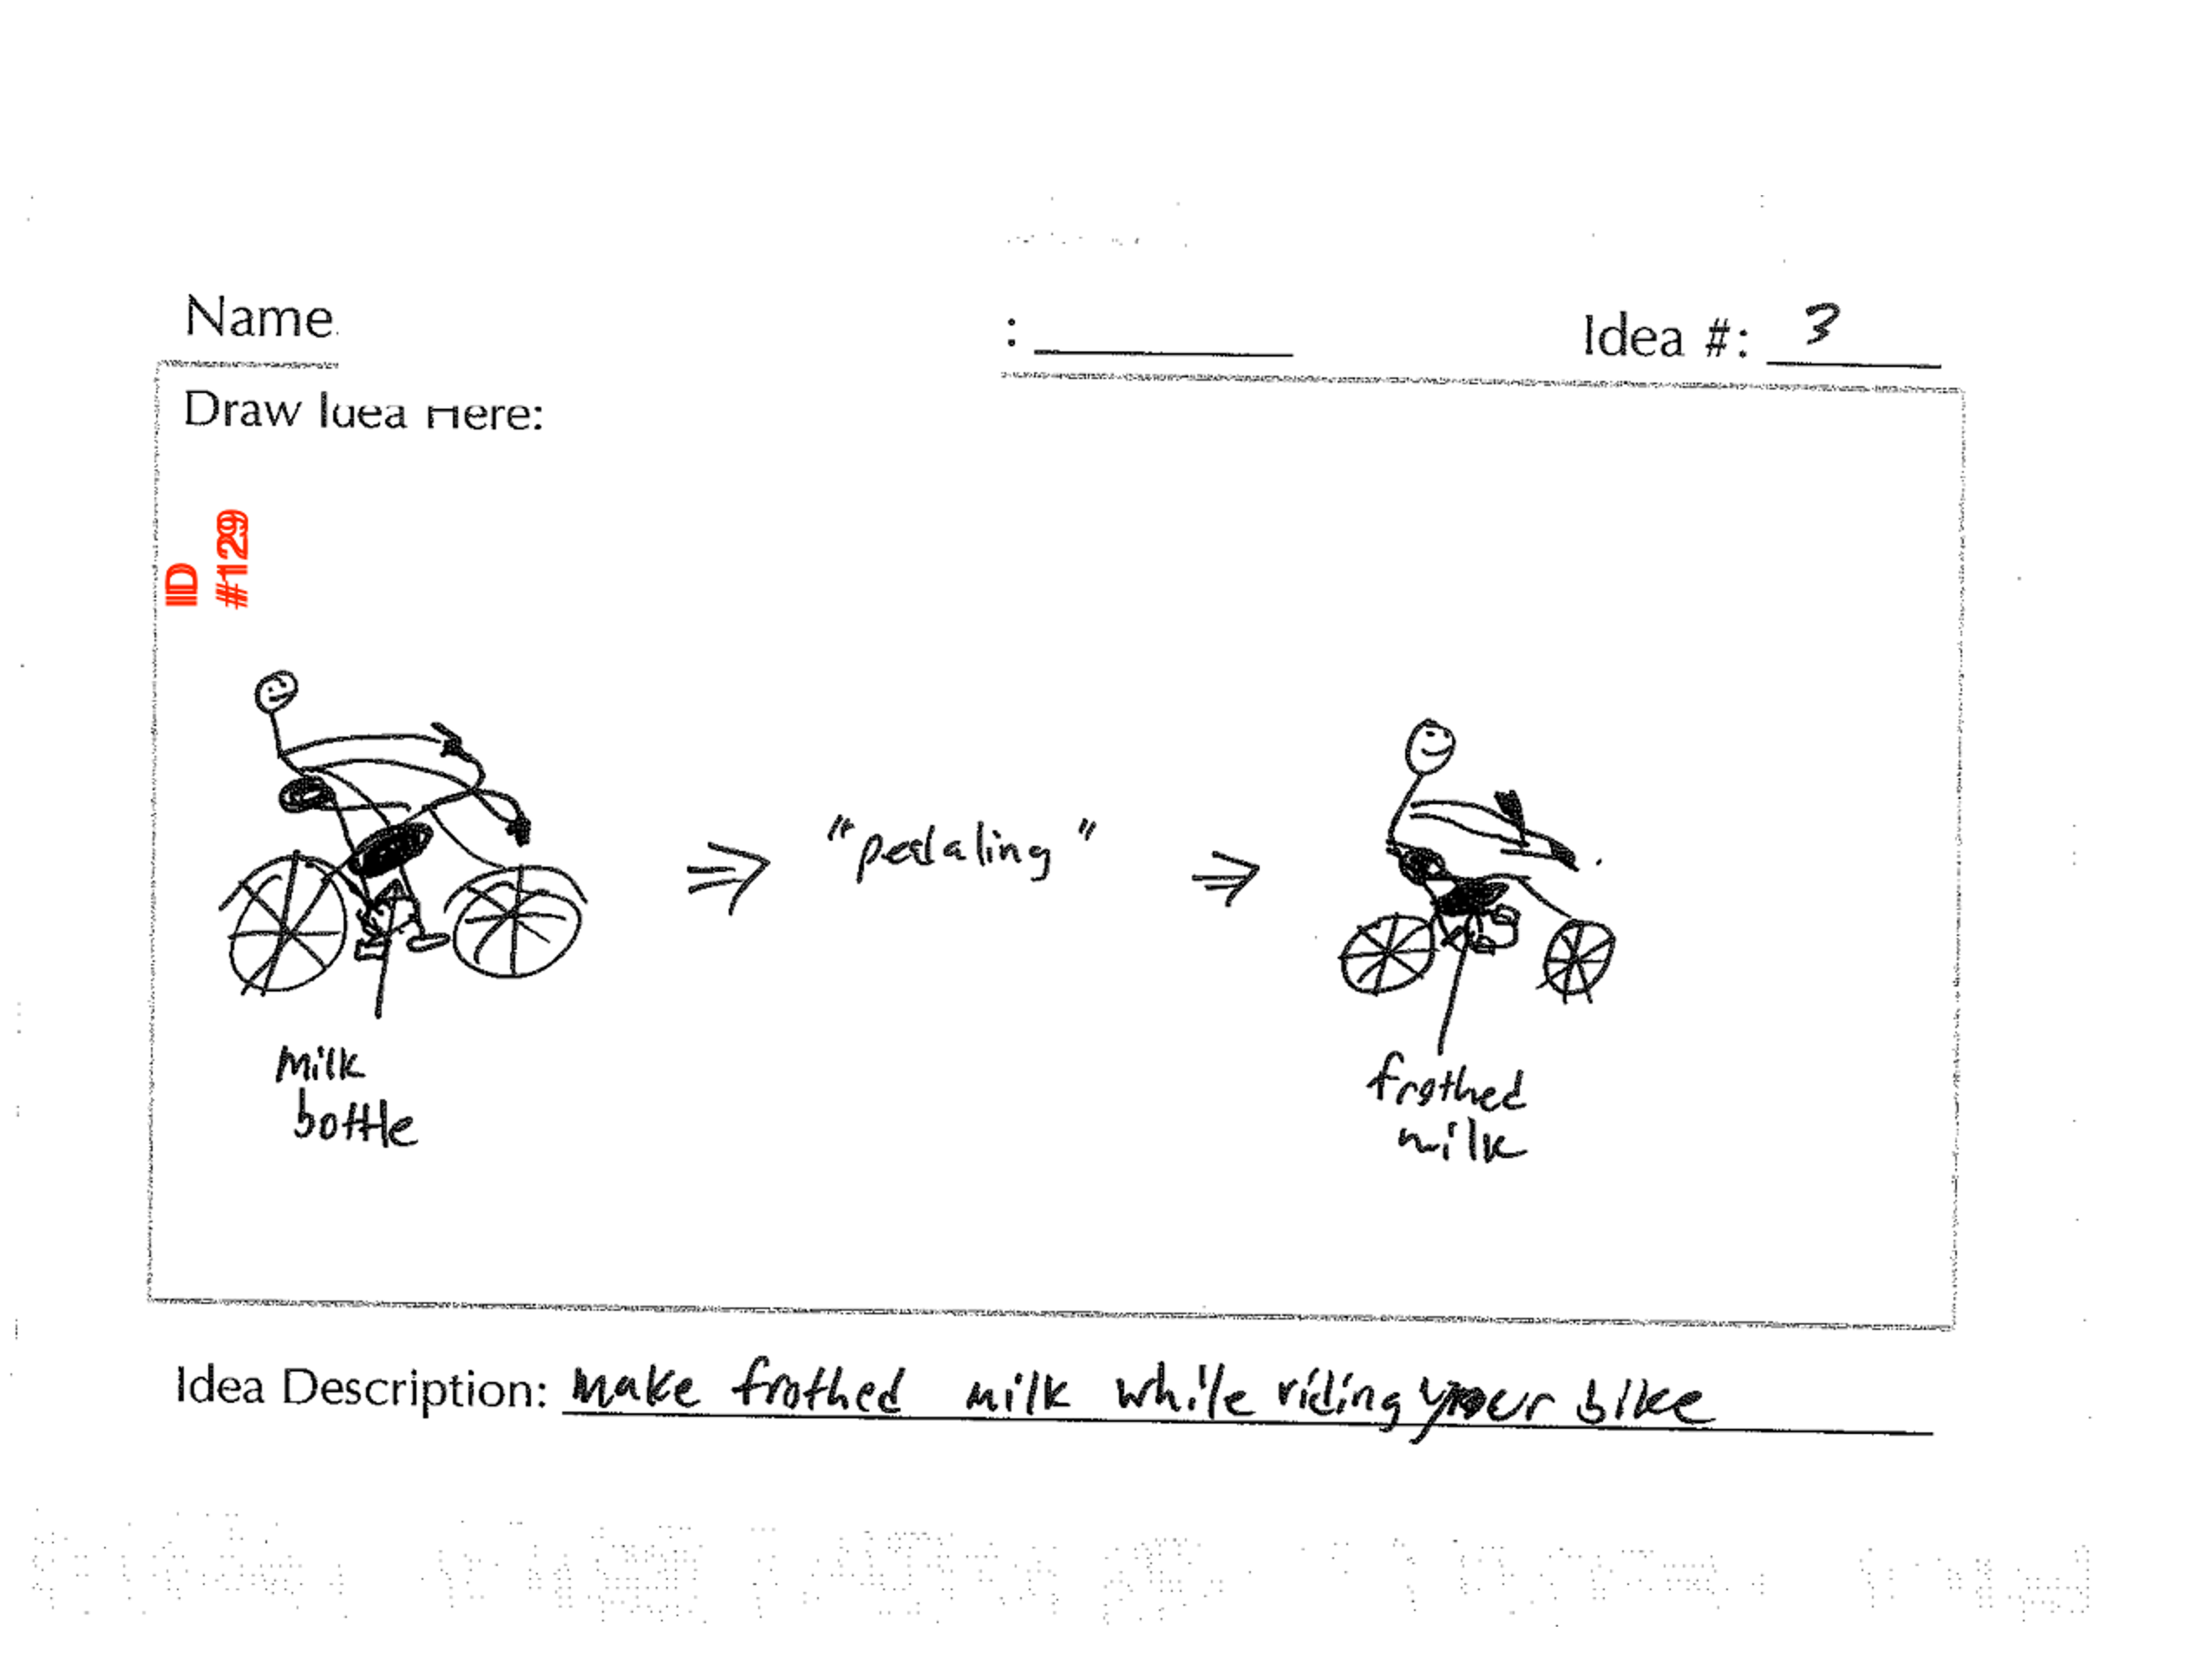 Name
:
Idea #: 3
Draw Idea Here:
ID
#129
"pedaling"
milk
bottle
frothed
milk
Idea Description: make frothed milk while riding your bike